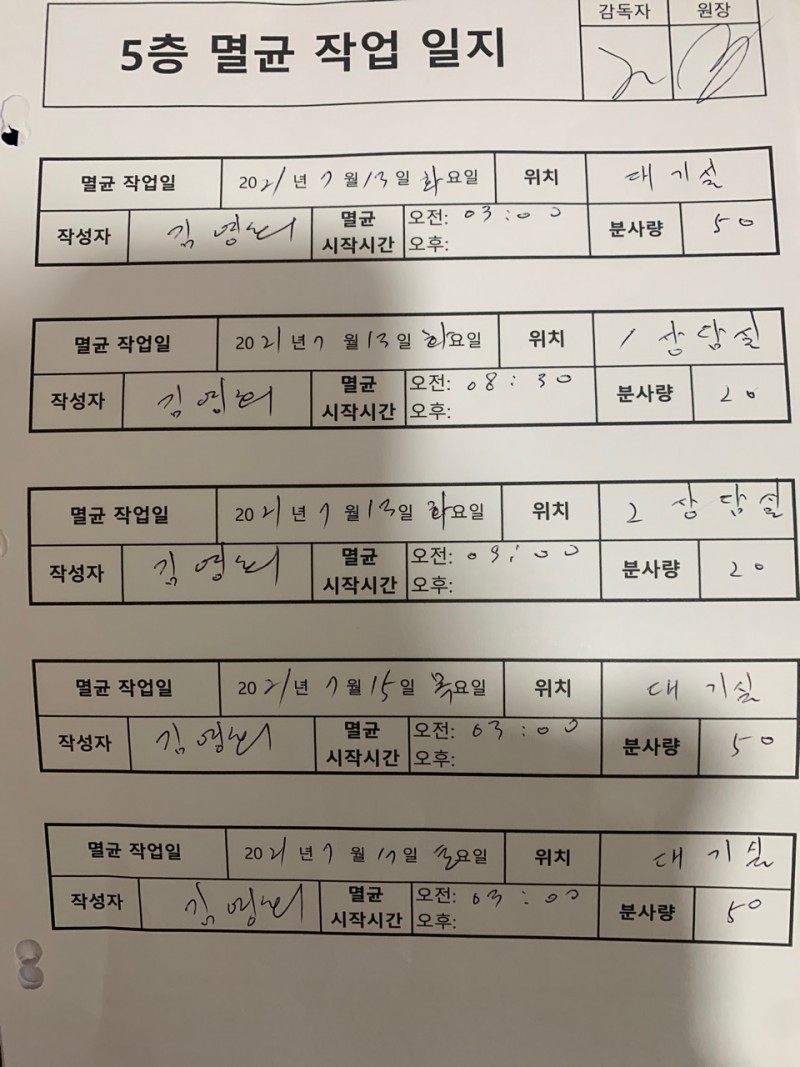 5층 멸균 작업 일지
감독자 원장
멸균 작업일 2021년 7월 13일 화요일 위치 대기실
작성자 멸균 시작시간 오전: 03:00 분사량 50
오후:
멸균 작업일 2021년 7월 13일 화요일 위치 1 상담실
작성자 멸균 시작시간 오전: 08:30 분사량 20
오후:
멸균 작업일 2021년 7월 13일 화요일 위치 2 상담실
작성자 멸균 시작시간 오전: 09:00 분사량 20
오후:
멸균 작업일 2021년 7월 15일 목요일 위치 대기실
작성자 멸균 시작시간 오전: 03:00 분사량 50
오후:
멸균 작업일 2021년 7월 17일 토요일 위치 대기실
작성자 멸균 시작시간 오전: 03:00 분사량 50
오후: